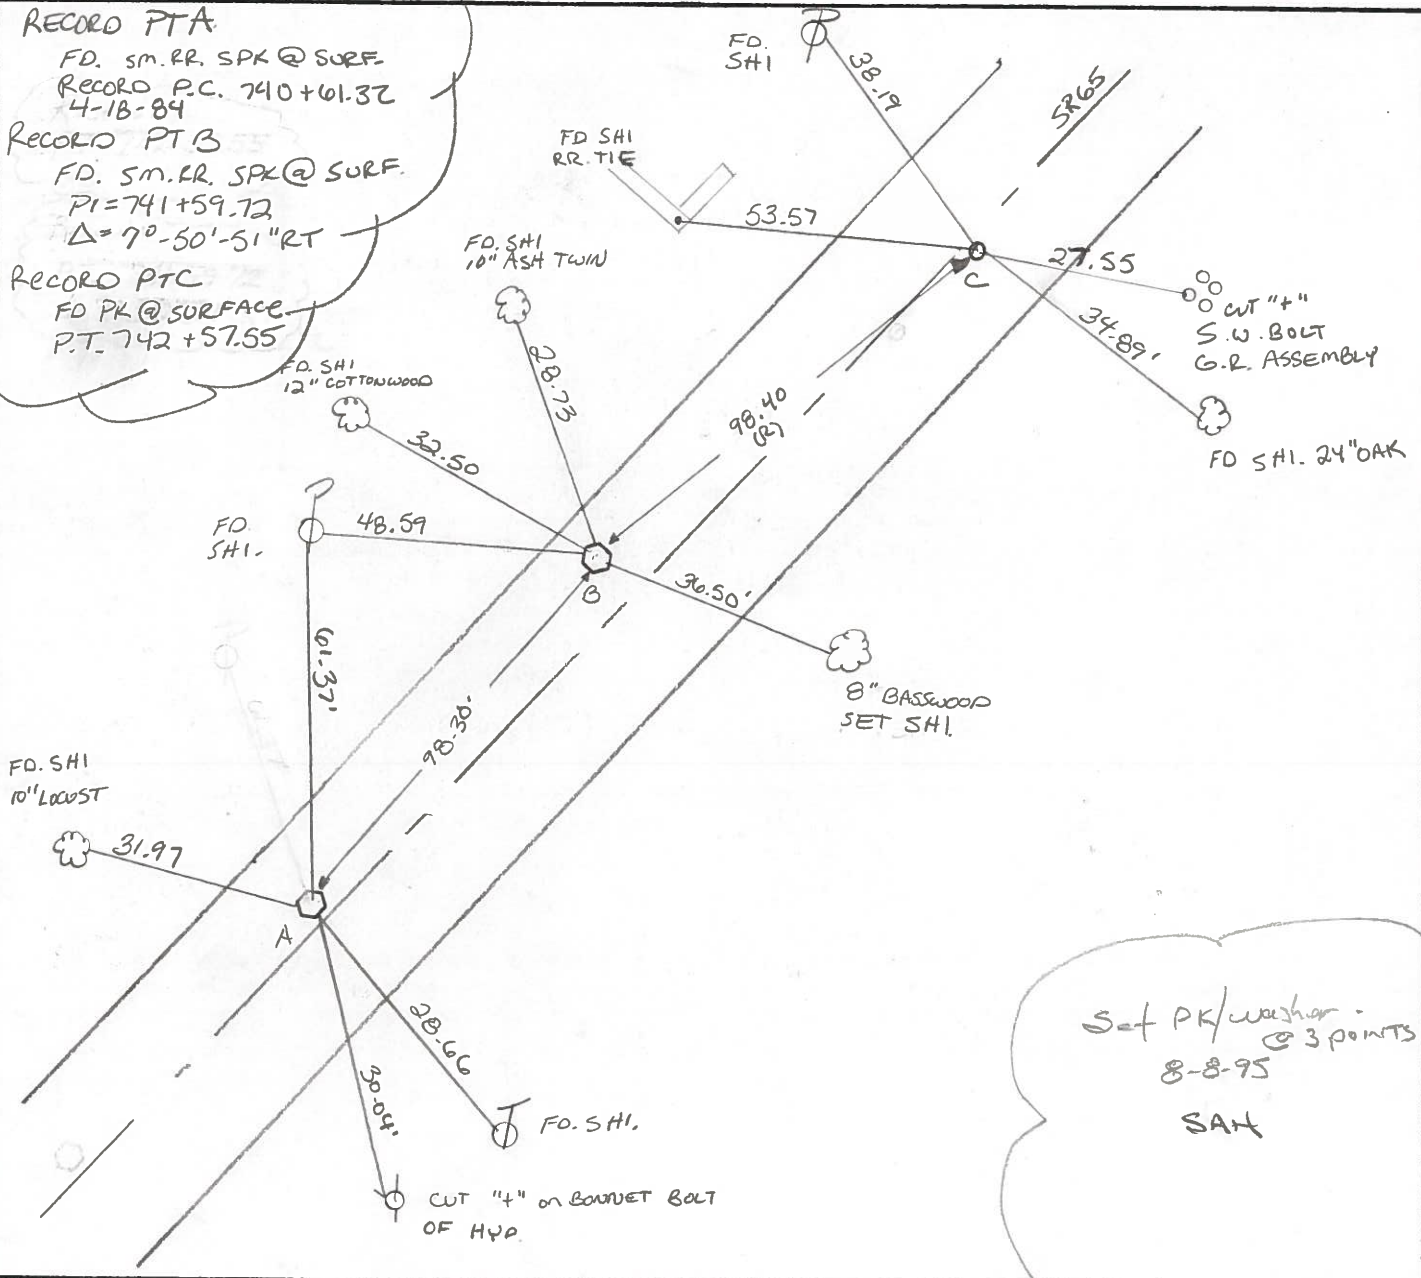 RECORD PT A
FD. SM. RR. SPK @ SURF.
RECORD P.C. 740+61.32
4-18-84
RECORD PT B
FD. SM. RR. SPK @ SURF.
PI = 741+59.72
Δ = 7°-50'-51" RT
RECORD PT C
FD PK @ SURFACE
P.T. 742+57.55
FD.
SHI
38.19
SR65
FD SHI
RR. TIE
53.57
27.55
C
CUT "+"
S.W. BOLT
G.R. ASSEMBLY
34.89'
FD SHI. 24" OAK
FD. SHI
10" ASH TWIN
28.73
FD. SHI
12" COTTONWOOD
32.50
98.40
(R)
FD.
SHI.
48.59
B
36.50'
8" BASSWOOD
SET SHI.
61.37'
98.30'
FD. SHI
10" LOCUST
31.97
A
28.66
30.04'
FD. SHI.
CUT "+" on BONNET BOLT
OF HYD.
Set PK/washer
@ 3 POINTS
8-8-95
SAH